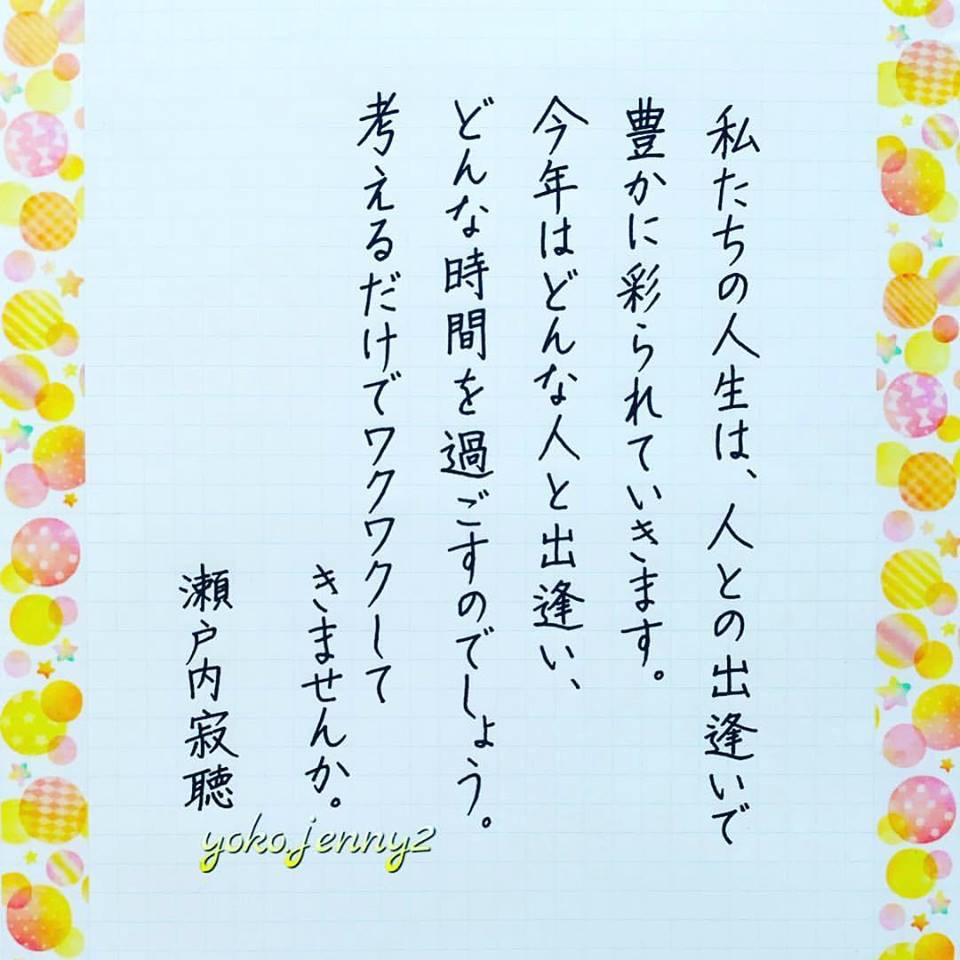 私たちの人生は、人との出逢いで
豊かに彩られていきます。
今年はどんな人と出逢い、
どんな時間を過ごすのでしょう。
考えるだけでワクワクして
きませんか。
瀬戸内寂聴
yoko.jenny2